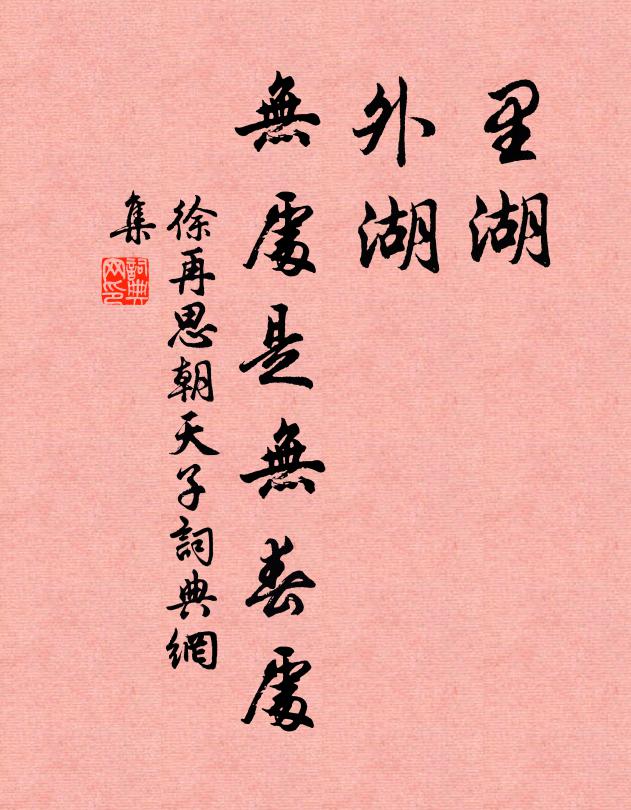 里湖
外湖
無處是無春處
徐再思朝天子詞典網
集
詞典
网印